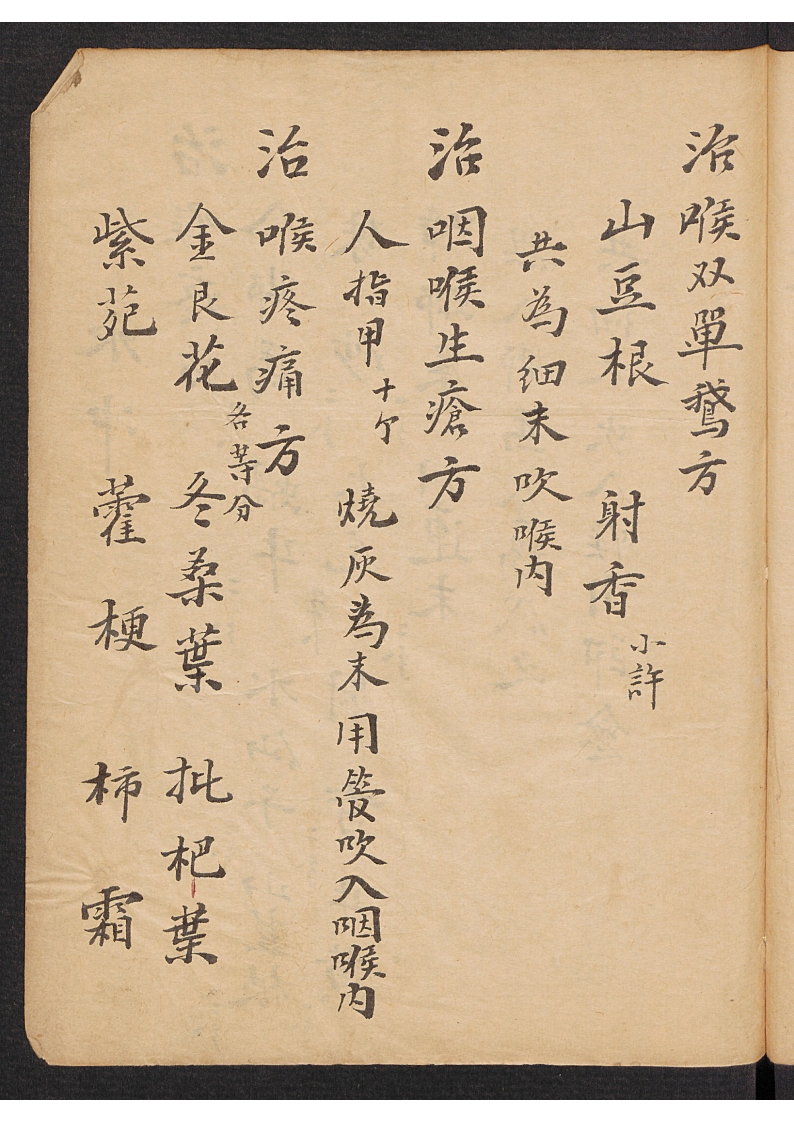 治喉双單鵞方
山豆根 射香 小許
共為細末吹喉内
治咽喉生瘡方
人指甲 十个 燒灰為末用管吹入咽喉内
治喉疼痛方
金艮花 各等分 冬桑葉 批杷葉
紫菀 藿梗 柿霜